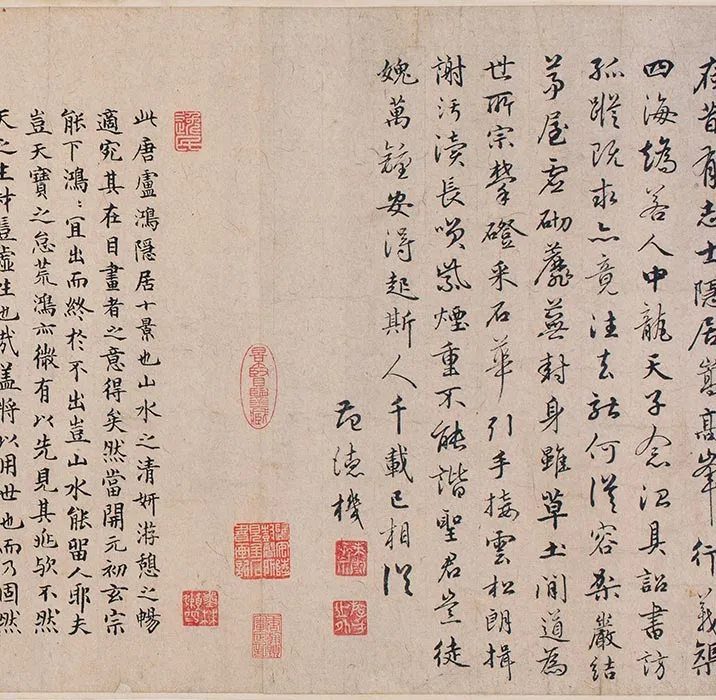 在昔有志士隱居嵩高峯行義
四海矯若人中龍天子念具詔書訪
孤蹤既求亦竟往去就何從容桑巖結
茅屋虛砌蘼蕪封身雖草土間道為
世所宗攀磴采石華引手接雲松朗揖
謝污瀆長嘯紫煙重不能諧聖君豈徒
媿萬鍾安得起斯人千載已相從
范德機
此唐盧鴻隱居十景也山水之清妍游憩之暢
適宛其在目畫者之意得矣然當開元初玄宗
能下鴻鴻宜出而終於不出豈山水能留人耶夫
豈天寶之怠荒鴻亦微有以先見其兆歟不然
天之生材豈虛生也哉蓋將以用世也而乃固然